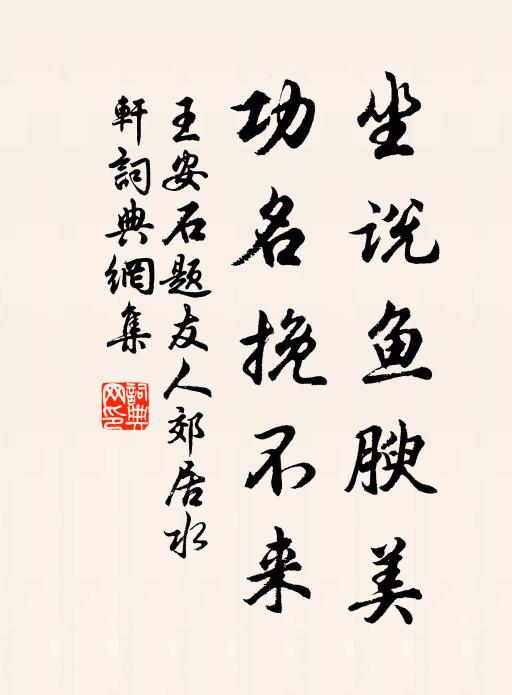 坐说鱼腴美
功名挽不来
王安石题友人郊居水
軒詞典網集
詞典
网印